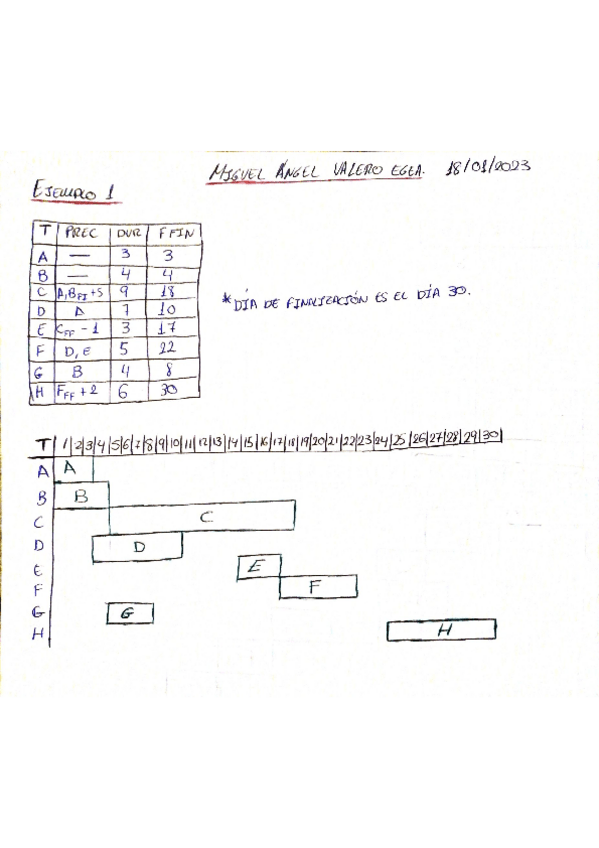 MIGUEL ÁNGEL VALERO EGEA. 18/01/2023
EJEMPLO 1
T PREC DUR F FIN
A — 3 3
B — 4 4
C A,B FI +5 9 18
D A 7 10
E C FF - 1 3 17
F D, E 5 22
G B 4 8
H F FF + 2 6 30
* DÍA DE FINALIZACIÓN ES EL DÍA 30.
T 1|2|3|4|5|6|7|8|9|10|11|12|13|14|15|16|17|18|19|20|21|22|23|24|25|26|27|28|29|30|
A A
B B
C C
D D
E E
F F
G G
H H